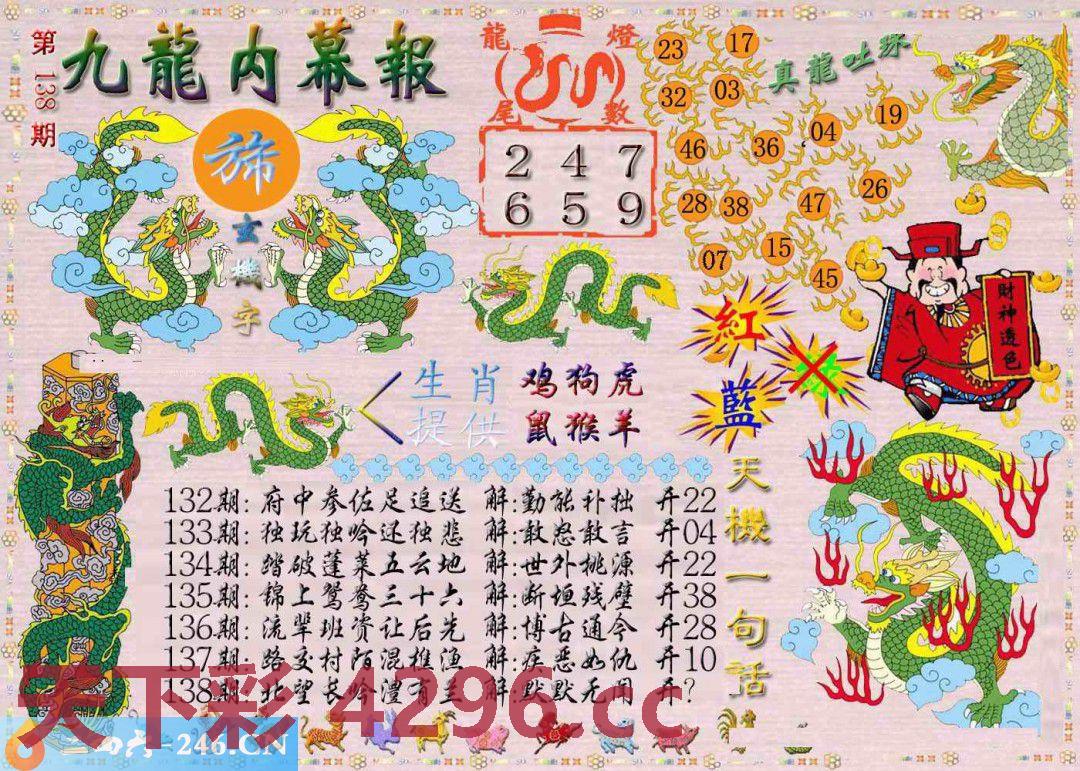 第138期
九龍内幕報
旆
玄機字
龍燈尾數
2 4 7
6 5 9
真龍吐珠
23 17
32 03
46 36 04 19
28 38 47 26
07 15 45
紅
綠
藍
財神透色
生肖提供
鸡狗虎
鼠猴羊
132期: 府中参佐足追送 解:勤能补拙 开22
133期: 独玩独吟还独悲 解:敢怒敢言 开04
134期: 踏破蓬莱五云地 解:世外桃源 开22
135期: 錦上鸳鸯三十六 解:断垣残壁 开38
136期: 流辈班资让后先 解:博古通今 开28
137期: 路交村陌混樵渔 解:疾恶如仇 开10
138期: 北望长吟澧有兰 解:默默无闻 开?
天機一句话
天下彩 4296.cc
246.CN